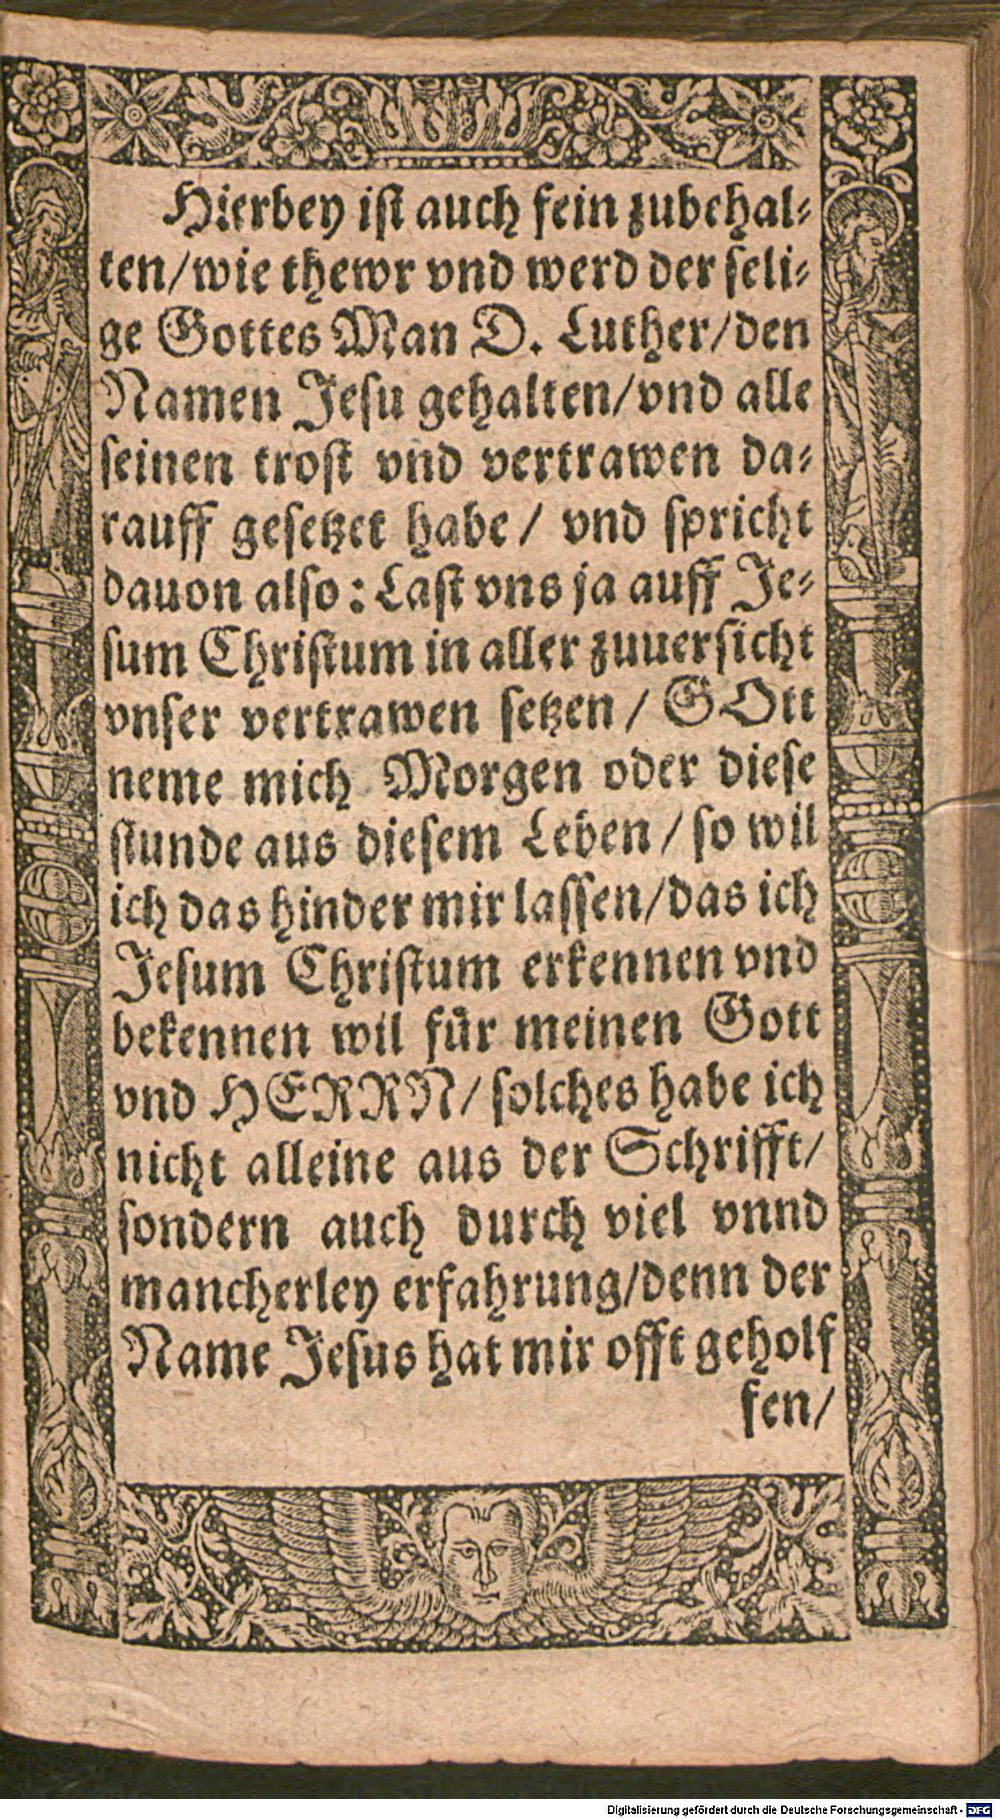 Hierbey ist auch fein zubehal⸗
ten/wie thewr vnd werd der seli⸗
ge Gottes Man D. Luther/den
Namen Jesu gehalten/vnd alle
seinen trost vnd vertrawen da⸗
rauff gesetzet habe/ vnd spricht
dauon also: Last vns ja auff Je⸗
sum Christum in aller zuuersicht
vnser vertrawen setzen/ GOtt
neme mich Morgen oder diese
stunde aus diesem Leben/ so wil
ich das hinder mir lassen/das ich
Jesum Christum erkennen vnd
bekennen wil für meinen Gott
vnd HERRN/ solches habe ich
nicht alleine aus der Schrifft/
sondern auch durch viel vnnd
mancherley erfahrung/denn der
Name Jesus hat mir offt geholf
fen/
Digitalisierung gefördert durch die Deutsche Forschungsgemeinschaft - DFG